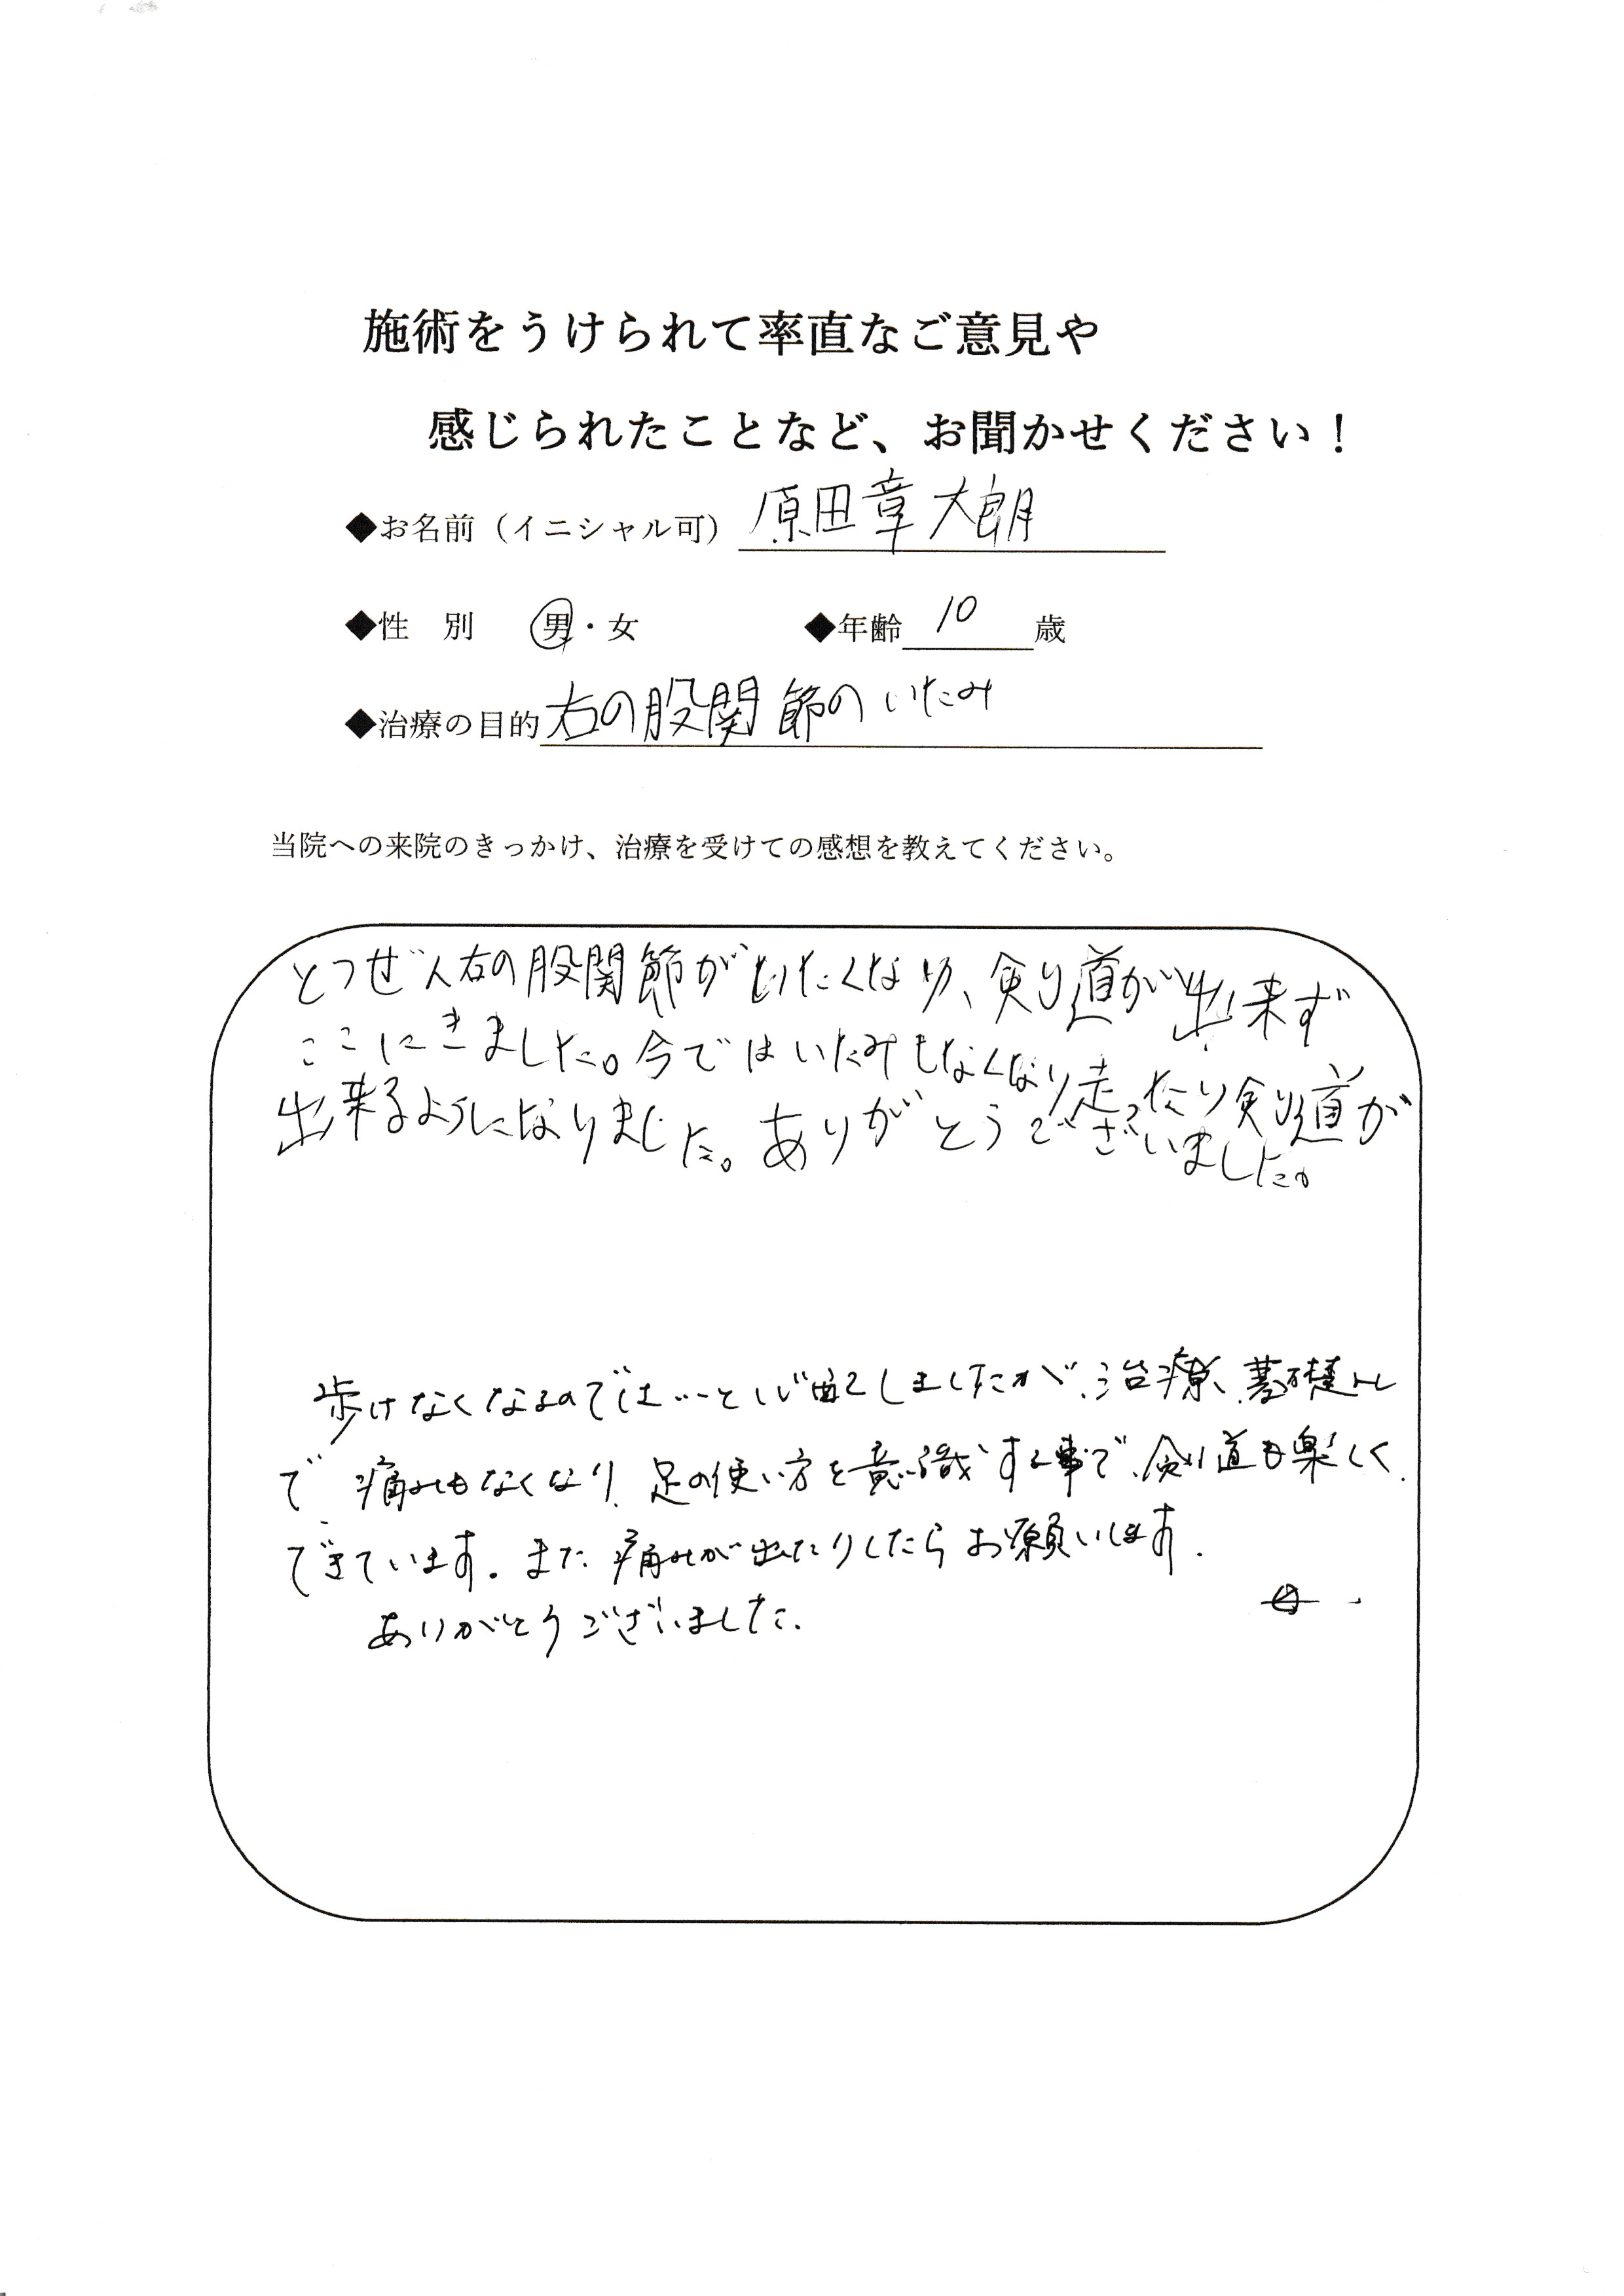 施術をうけられて率直なご意見や
感じられたことなど、お聞かせください！
◆お名前（イニシャル可） 原田章太朗
◆性　別　男・女　◆年齢 10 歳
◆治療の目的 右の股関節のいたみ
当院への来院のきっかけ、治療を受けての感想を教えてください。
とつぜん右の股関節がいたくなり、剣道が出来ず
ここにきました。今ではいたみもなくなり走ったり剣道が
出来るようになりました。ありがとうございました。
歩けなくなるのでは…と心配しましたが、治療、基礎トレ
で痛みもなくなり、足の使い方を意識する事で、剣道も楽しく
できています。また痛みが出たりしたらお願いします。
ありがとうございました。
母